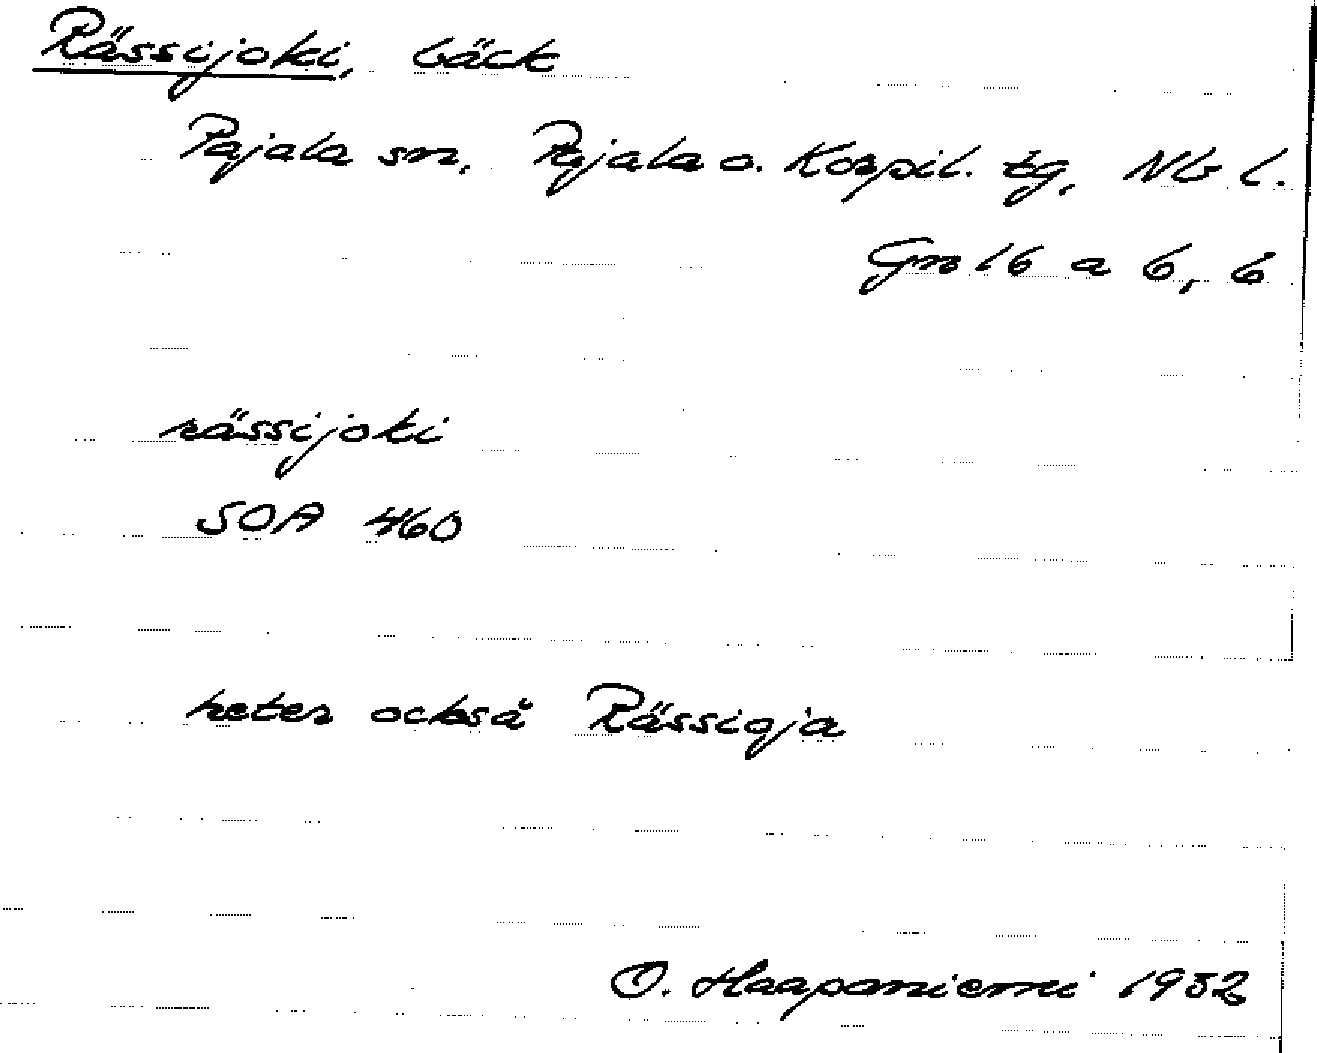 Rässijoki, bäck
Pajala sn, Pajala o. Korpil. tg, Nb l.
Gm 16 a 6, b
rässijoki
SOA 460
heter också Rässioja
O. Haapaniemi 1932